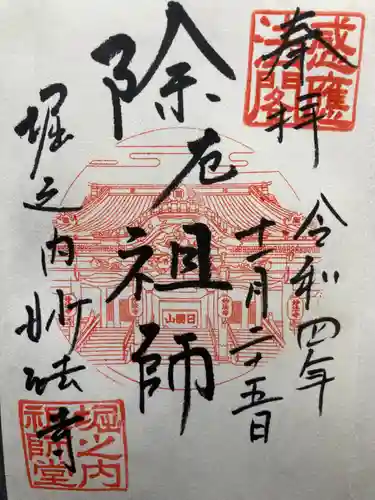 奉拝
令和四年
十一月二十五日
除厄祖師
堀之内妙法寺
感應法門
日圓山
堀之内祖師堂